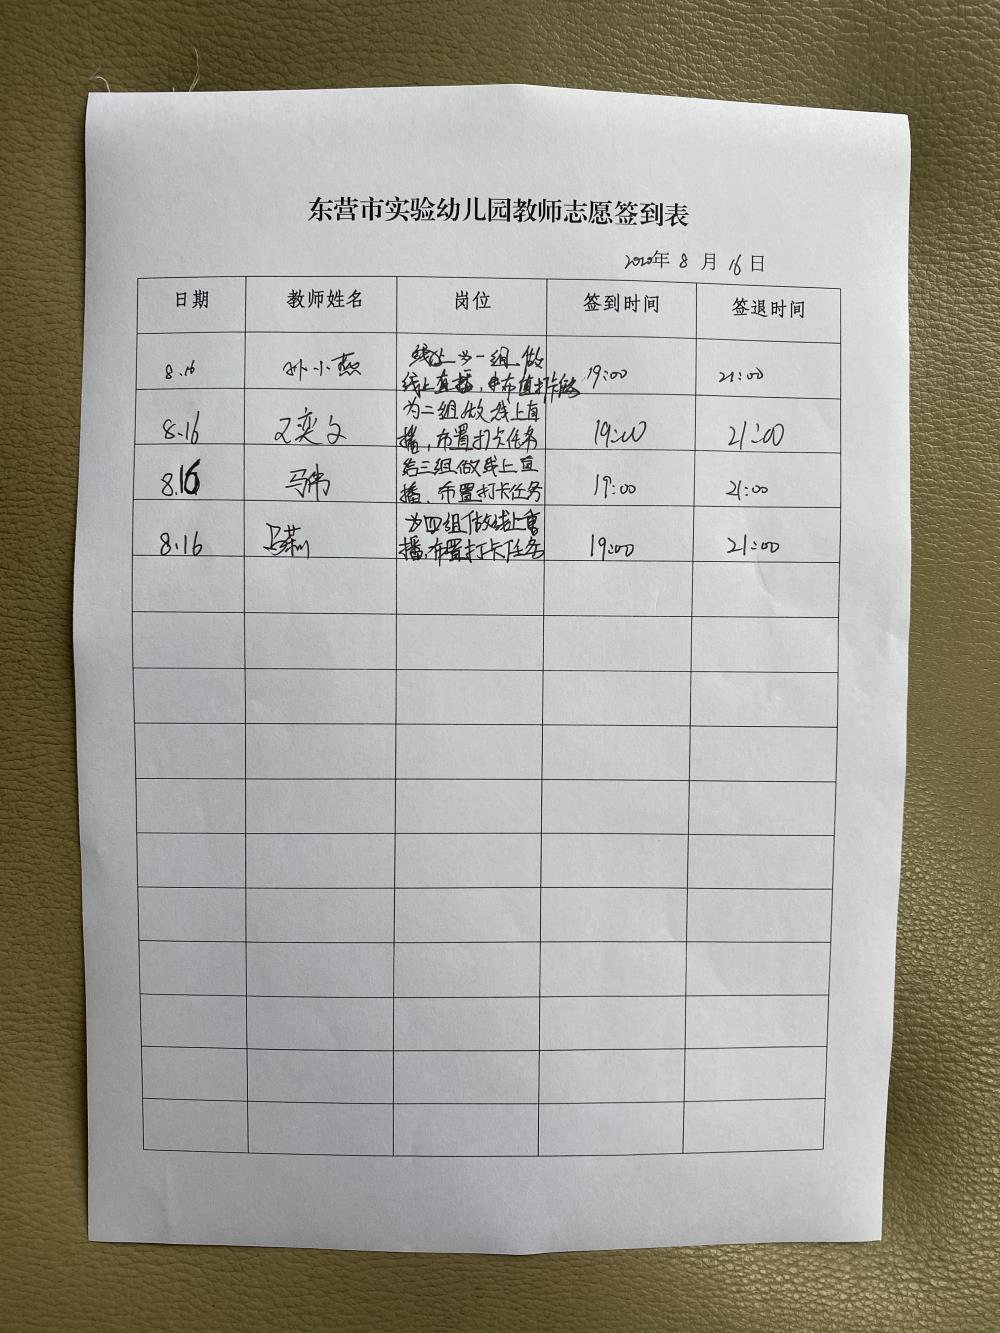 东营市实验幼儿园教师志愿签到表
2020年 8 月 16 日
日期 教师姓名 岗位 签到时间 签退时间
8.16 孙小燕 为一组做 19:00 21:00
线上直播,布置打卡
8.16 奕文 为二组做线上直 19:00 21:00
播,布置打卡任务
8.16 马伟 给三组做线上直 19:00 21:00
播,布置打卡任务
8.16 为四组做线上直 19:00 21:00
播,布置打卡任务